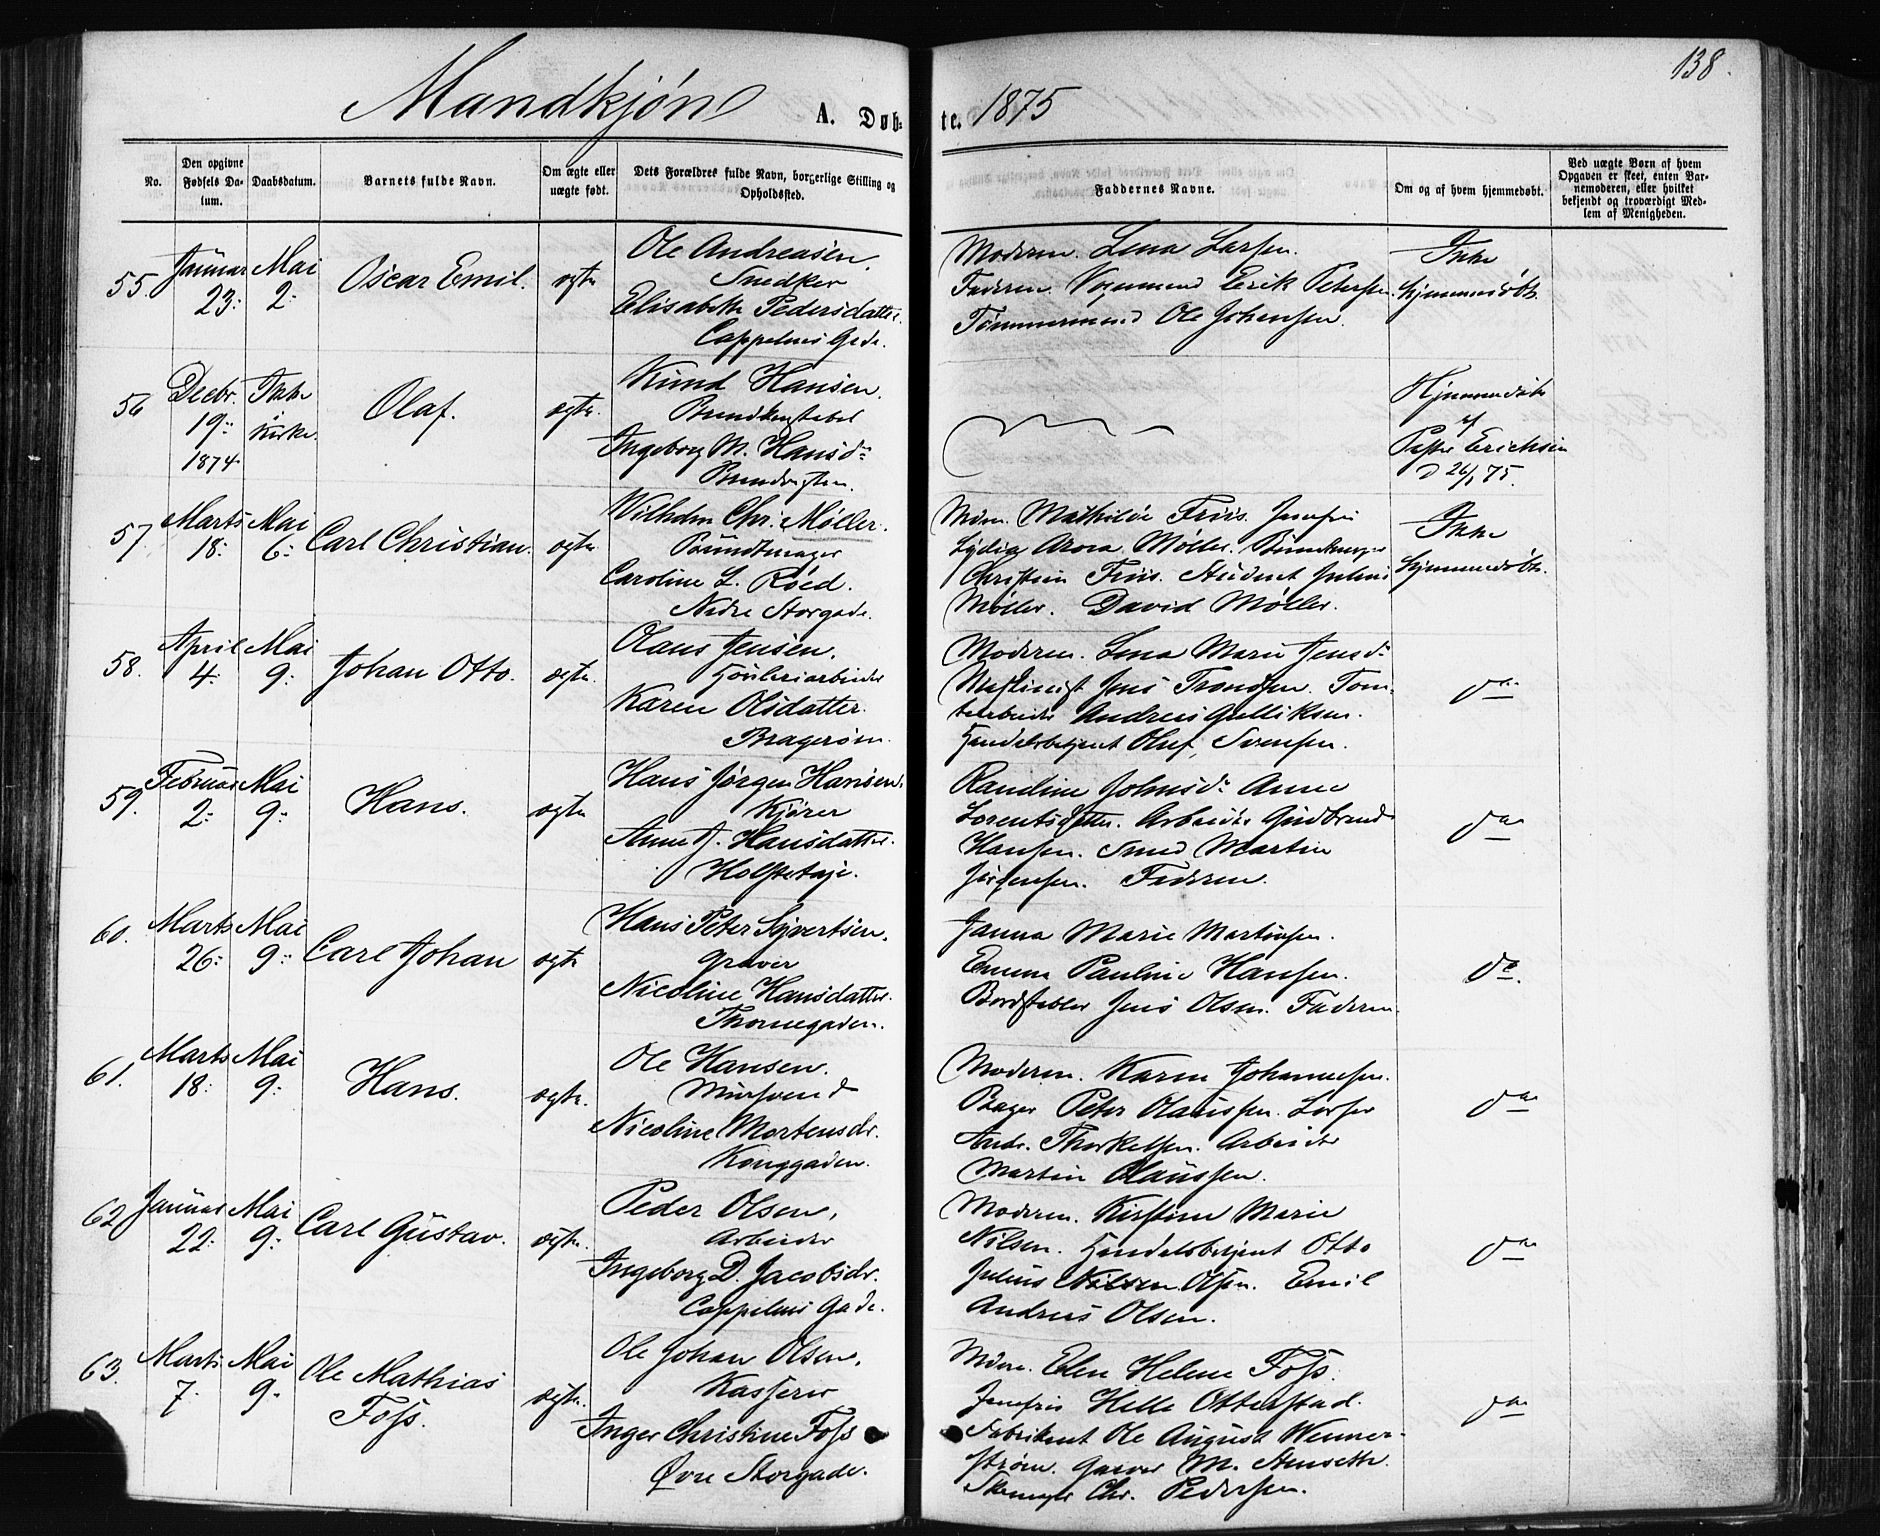 138.
Mandkjøn A. Døb- te. 1875
No.
Den opgivne Fødsels Da- tum.
Daabsdatum.
Barnets fulde Navn.
Om ægte eller uægte født.
Dets Forældres fulde Navn, borgerlige Stilling og Opholdssted.
Faddernes Navne.
Om og af hvem hjemmedøbt.
Ved uægte Børn af hvem Opgaven er skeet, enten Bar- nemoderen, eller hvilket bekjendt og troværdigt Med- lem af Menigheden.
55. Januar 23. Mai 2. Oscar Emil. ægte
Ole Andreasen.
Snedker
Elisabeth Pedersdatter.
Cappelens Gade.
Moderen. Lena Larsen.
Faderen. Vognmand Erik Petersen.
Tømmermand Ole Johansen.
Ikke
hjemmedøbt.
56 Decbr. 19. 1874 Ikke i Kirke. Olaf. ægte.
Knud Hansen.
Brandkonstabel
Ingeborg M. Hansd.
Brandvagten.
Hjemmedøbt
af
Pastor Erichsen
D 26/1 75.
57. Marts 18. Mai 6. Carl Christian. ægte.
Wilhelm Chr. Møller.
Bundtmager
Caroline L. Röed.
Nedre Storgade.
Mdm. Mathilde Friis. Jomfru
Lydia Arora Møller. Bundtmager
Christian Friis. Student Julius
Møller. David Møller.
Ikke
hjemmedøbt.
58. April 4. Mai 9. Johan Otto. ægte.
Olaus Jensen.
Høvleriarbeider
Karen Olsdatter.
Bragerøen.
Moderen. Lena Marie Jensd.
Maskinist Jens Trondsen. Tom-
tearbeider Andreas Gulliksen.
Handelsbetjent Oluf Svensen.
do
59. Februar 2. Mai 9. Hans. ægte
Hans Jörgen Hansen.
Kjører
Anne J. Hansdatter.
Holstetoje.
Randine Johnsd. Anne
Lorentsdatter. Arbeider Gudbrand
Hansen. Smed Martin
Jörgensen. Faderen.
do
60. Marts 26. Mai 9. Carl Johan ægte
Hans Peter Syvertsen.
Graver
Nicoline Hansdatter.
Thornegaden.
Janna Marie Martinsen.
Emma Pauline Hansen.
Bordstabler Jens Olsen. Faderen.
do.
61. Marts 18. Mai 9. Hans. ægte.
Ole Hansen.
Mursvend
Nicoline Mortensdr.
Konggaden.
Moderen. Karen Johannesen.
Bager Peter Olaussen. Lodser
Andr. Thorkelsen. Arbeider
Martin Olaussen.
do
62 Januar 22. Mai 9. Carl Gustav. ægte.
Peder Olsen,
Arbeider
Ingeborg D. Jacobsdr.
Cappelens Gade.
Moderen. Kirstine Marie
Nilsen. Handelsbetjent Otto
Julius Nilsen Olsen. Emil
Andreas Olsen.
do
63 Marts 7. Mai 9. Ole Mathias Foss. ægte.
Ole Johan Olsen,
Kasserer
Inger Christine Foss
Øvre Storgade.
Mdm. Elen Helene Foss.
Jomfru Helle Otterstad.
Fabrikant Ole August Wenner-
ström. Garver M. Stenseth.
Skomager Chr. Pedersen.
do